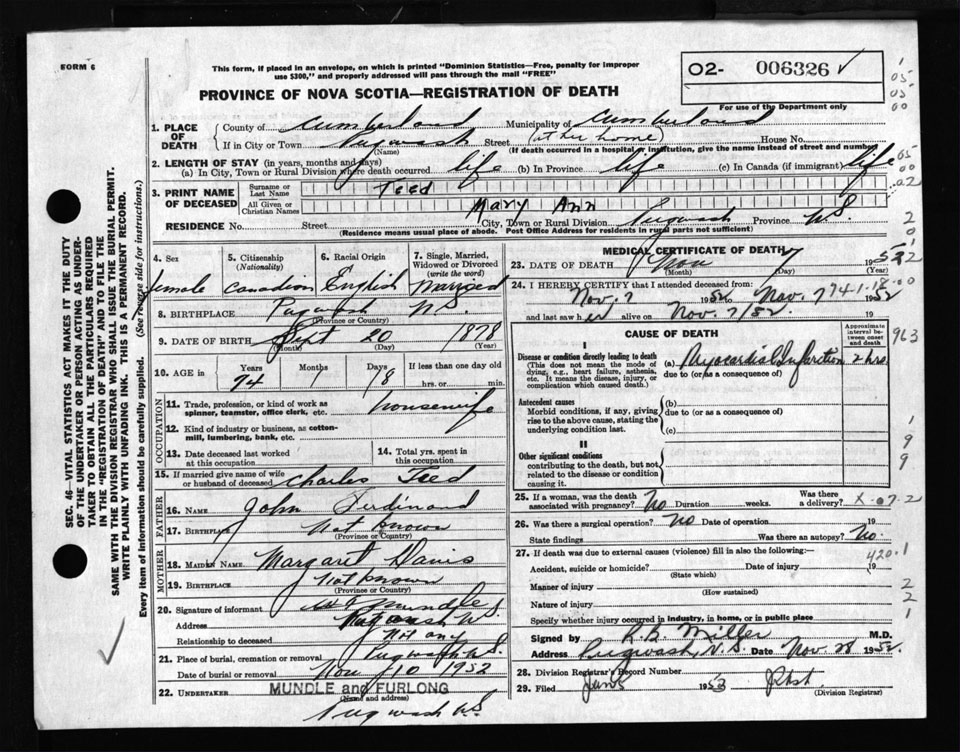 FORM 6
This form, if placed in an envelope, on which is printed "Dominion Statistics—Free, penalty for improper
use $300," and properly addressed will pass through the mail "FREE"
02- 006326 ✓
PROVINCE OF NOVA SCOTIA—REGISTRATION OF DEATH
For use of the Department only
1. PLACE OF DEATH County of Cumberland Municipality of Cumberland
If in City or Town Pugwash Street (at her home) House No.
(Name) (If death occurred in a hospital or institution, give the name instead of street and number)
2. LENGTH OF STAY (in years, months and days)
(a) In City, Town or Rural Division where death occurred life (b) In Province life (c) In Canada (if immigrant) life
3. PRINT NAME OF DECEASED Surname or Last Name Teed
All Given or Christian Names Mary Ann
RESIDENCE No. Street City, Town or Rural Division Pugwash Province N.S.
(Residence means usual place of abode. Post Office Address for residents in rural parts not sufficient)
4. Sex female
5. Citizenship (Nationality) Canadian
6. Racial Origin English
7. Single, Married, Widowed or Divorced (write the word) Married
8. BIRTHPLACE Pugwash N.S.
(Province or Country)
9. DATE OF BIRTH Sept 20 1878
(Month) (Day) (Year)
10. AGE in Years Months Days If less than one day old
74 1 18 hrs. or min.
OCCUPATION
11. Trade, profession, or kind of work as spinner, teamster, office clerk, etc. housewife
12. Kind of industry or business, as cotton-mill, lumbering, bank, etc.
13. Date deceased last worked at this occupation
14. Total yrs. spent in this occupation
15. If married give name of wife or husband of deceased Charles Teed
FATHER
16. NAME John Ferdinand
17. BIRTHPLACE Not known
(Province or Country)
MOTHER
18. MAIDEN NAME Margaret Davis
19. BIRTHPLACE Not known
(Province or Country)
20. Signature of informant Mundle
Address Pugwash N.S.
Relationship to deceased Not any
21. Place of burial, cremation or removal Pugwash N.S.
Date of burial or removal Nov 10 1952
22. UNDERTAKER MUNDLE and FURLONG
(Name and address)
Pugwash N.S.
MEDICAL CERTIFICATE OF DEATH
23. DATE OF DEATH Nov 7 1952
(Month) (Day) (Year)
24. I HEREBY CERTIFY that I attended deceased from:
Nov. 7 1952 to Nov. 7 1952
and last saw her alive on Nov. 7/52.
CAUSE OF DEATH
Approximate interval between onset and death
I
Disease or condition directly leading to death (a) Myocardial Infarction 2 hrs.
(This does not mean the mode of dying, e.g., heart failure, asthenia, etc. It means the disease, injury, or complication which caused death.)
due to (or as a consequence of)
Antecedent causes (b)
Morbid conditions, if any, giving rise to the above cause, stating the underlying condition last.
due to (or as a consequence of)
(c)
II
Other significant conditions
contributing to the death, but not related to the disease or condition causing it.
25. If a woman, was the death associated with pregnancy? No Duration weeks. Was there a delivery?
26. Was there a surgical operation? No Date of operation 19
State findings Was there an autopsy? No.
27. If death was due to external causes (violence) fill in also the following:-
Accident, suicide or homicide? Date of injury 19
(State which)
Manner of injury
(How sustained)
Nature of injury
Specify whether injury occurred in industry, in home, or in public place
Signed by R.B. Miller M.D.
Address Pugwash, N.S. Date Nov. 28 1952
28. Division Registrar's Record Number
29. Filed 1953
(Division Registrar)
SEC. 46—VITAL STATISTICS ACT MAKES IT THE DUTY
OF THE UNDERTAKER OR PERSON ACTING AS UNDER-
TAKER TO OBTAIN ALL THE PARTICULARS REQUIRED
IN THE "REGISTRATION OF DEATH" AND TO FILE THE
SAME WITH THE DIVISION REGISTRAR WHO SHALL ISSUE THE BURIAL PERMIT.
WRITE PLAINLY WITH UNFADING INK. THIS IS A PERMANENT RECORD.
Every item of information should be carefully supplied. (See reverse side for instructions.)